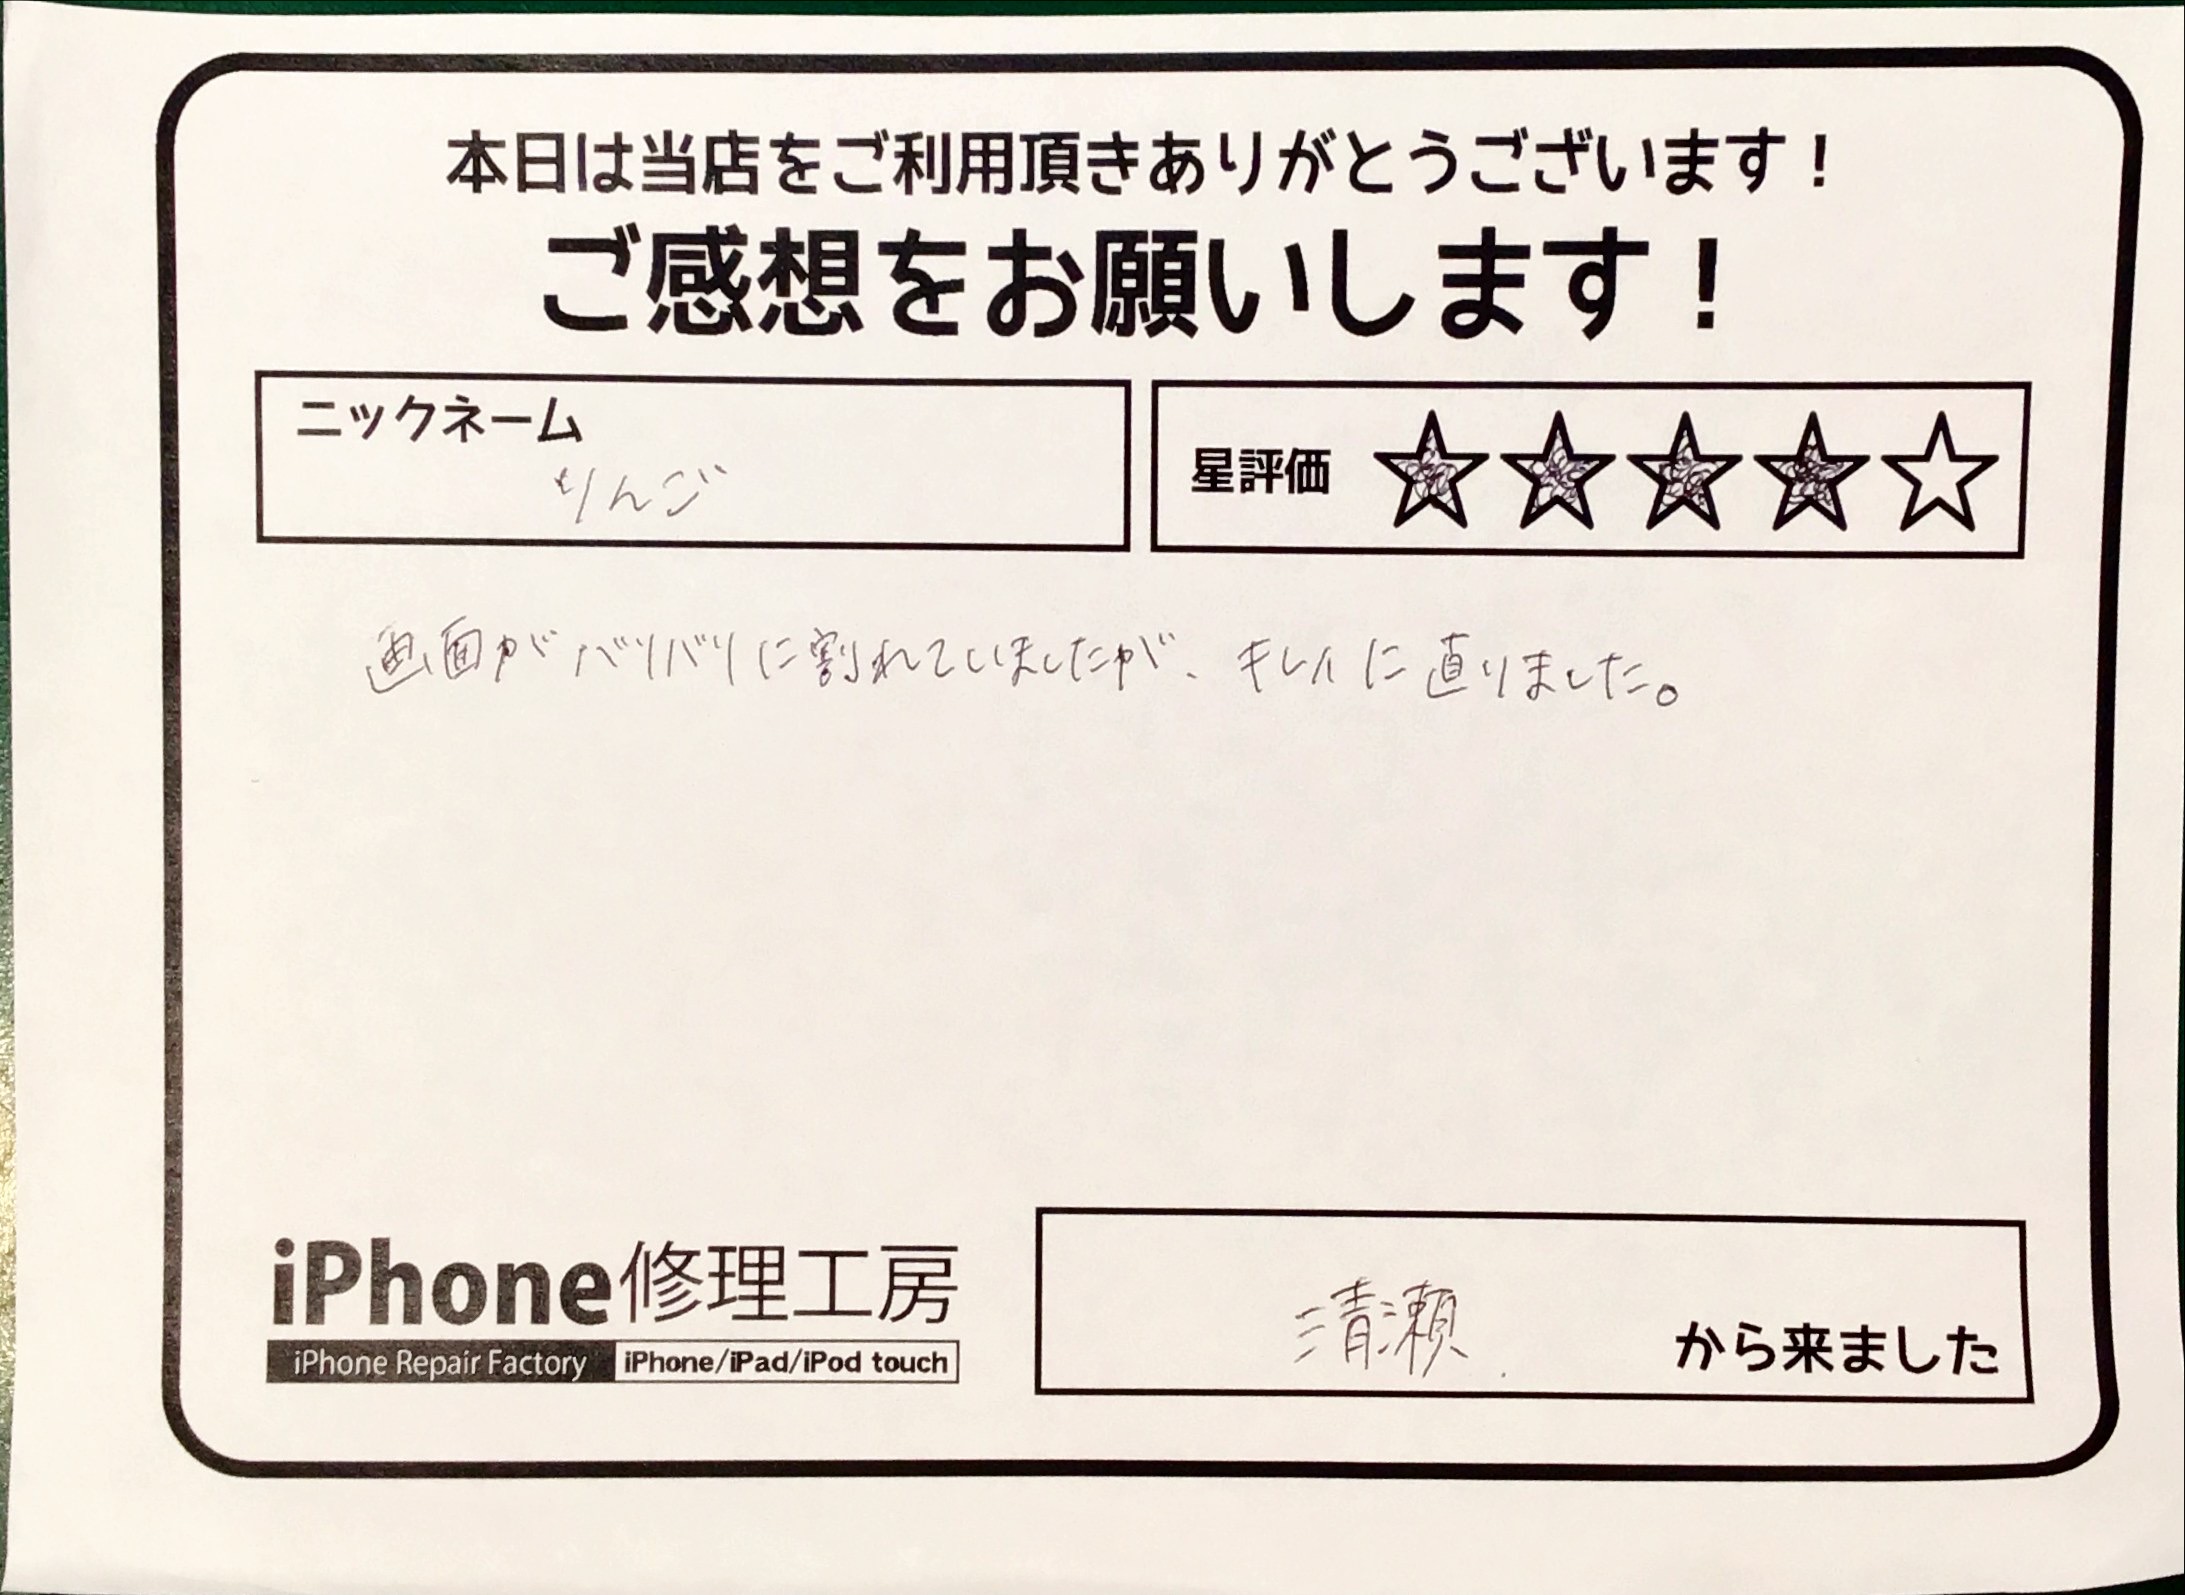 本日は当店をご利用頂きありがとうございます！
ご感想をお願いします！
ニックネーム
りんご
星評価
画面がバリバリに割れていましたが、キレイに直りました。
iPhone修理工房
iPhone Repair Factory iPhone/iPad/iPod touch
清瀬 から来ました